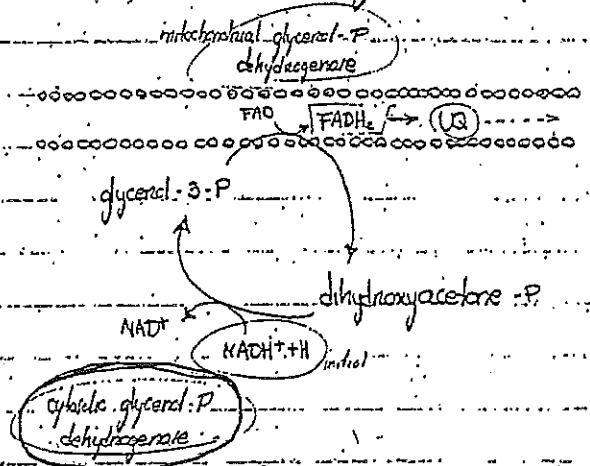 mitochondrial glycerol-P
dehydrogenase
FAD
FADH₂
UQ
glycerol-3-P
dihydroxyacetone-P
NAD⁺
NADH⁺+H
initial
cytosolic glycerol-P
dehydrogenase